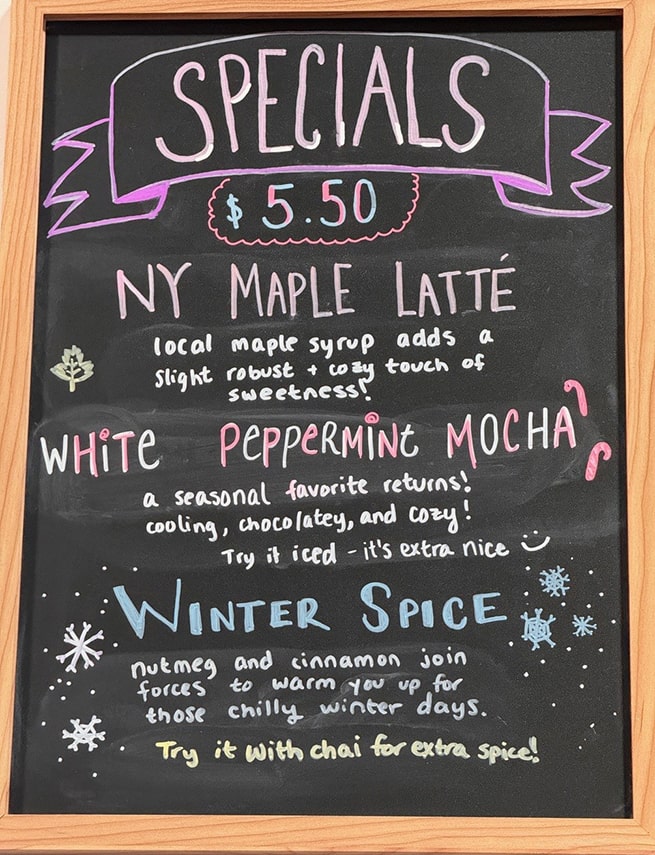 SPECIALS
$ 5.50
NY MAPLE LATTÉ
local maple syrup adds a
slight robust + cozy touch of
sweetness!
WHiTe PePPeRMiNt MOCHA
a seasonal favorite returns!
cooling, chocolatey, and cozy!
Try it iced - it's extra nice
WINTER SPICE
nutmeg and cinnamon join
forces to warm you up for
those chilly winter days.
Try it with chai for extra spice!